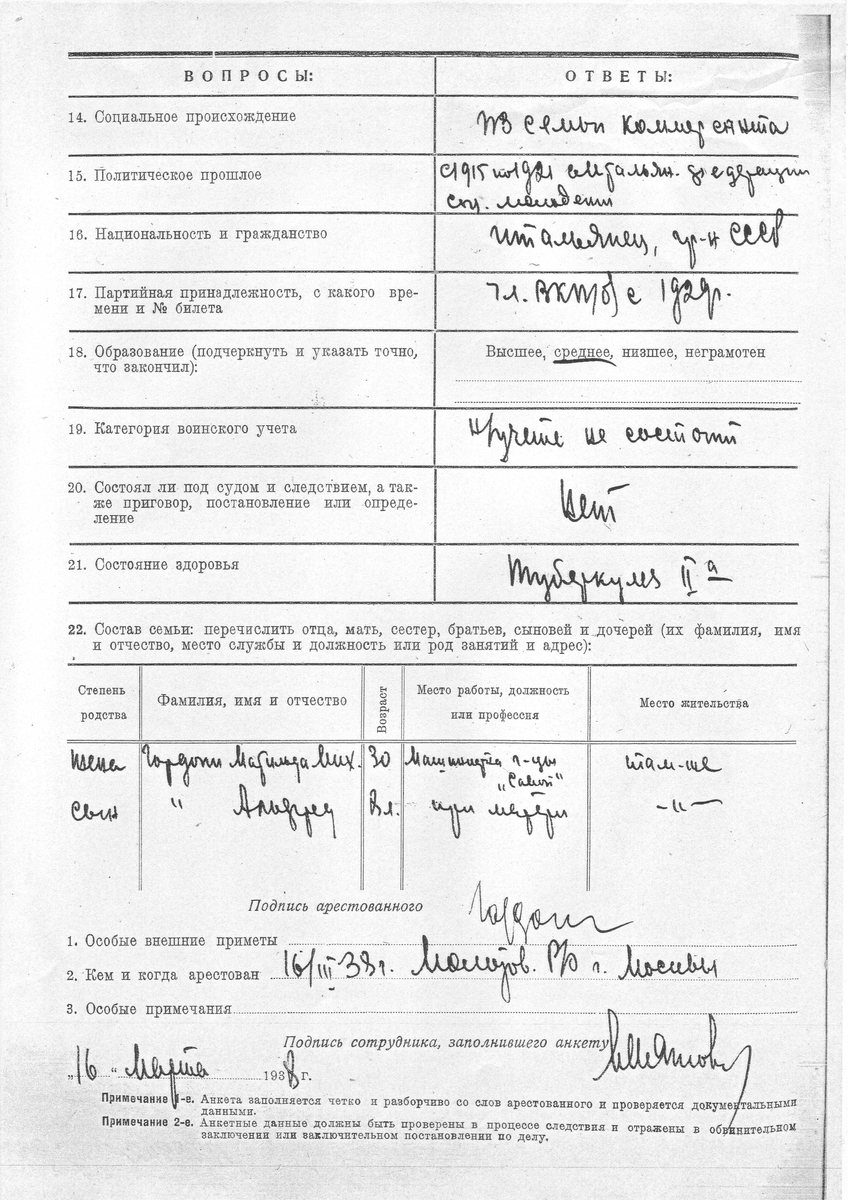 ВОПРОСЫ: ОТВЕТЫ:
14. Социальное происхождение Из семьи коммерсанта
15. Политическое прошлое с 1915 по 1921 Итальян. федерации
соц. молодежи
16. Национальность и гражданство Итальянец, гр-н СССР
17. Партийная принадлежность, с какого вре-
мени и № билета чл. ВКП/б/ с 1929г.
18. Образование (подчеркнуть и указать точно, Высшее, среднее, низшее, неграмотен
что закончил):
19. Категория воинского учета На учете не состоит
20. Состоял ли под судом и следствием, а так-
же приговор, постановление или опреде-
ление Нет
21. Состояние здоровья Туберкулез II а
22. Состав семьи: перечислить отца, мать, сестер, братьев, сыновей и дочерей (их фамилия, имя
и отчество, место службы и должность или род занятий и адрес):
Степень
родства
Фамилия, имя и отчество
Возраст
Место работы, должность
или профессия
Место жительства
жена Гордони Матильда Мих. 30 Машинистка г-цы „Савой" там-же
сын " Альфред л. при матери -"-
Подпись арестованного
1. Особые внешние приметы
2. Кем и когда арестован 16/III-38г. Молотов. Р/О г. Москвы
3. Особые примечания
Подпись сотрудника, заполнившего анкету
„16" Марта 1938 г.
Примечание 1-е. Анкета заполняется четко и разборчиво со слов арестованного и проверяется документальными
данными.
Примечание 2-е. Анкетные данные должны быть проверены в процессе следствия и отражены в обвинительном
заключении или заключительном постановлении по делу.